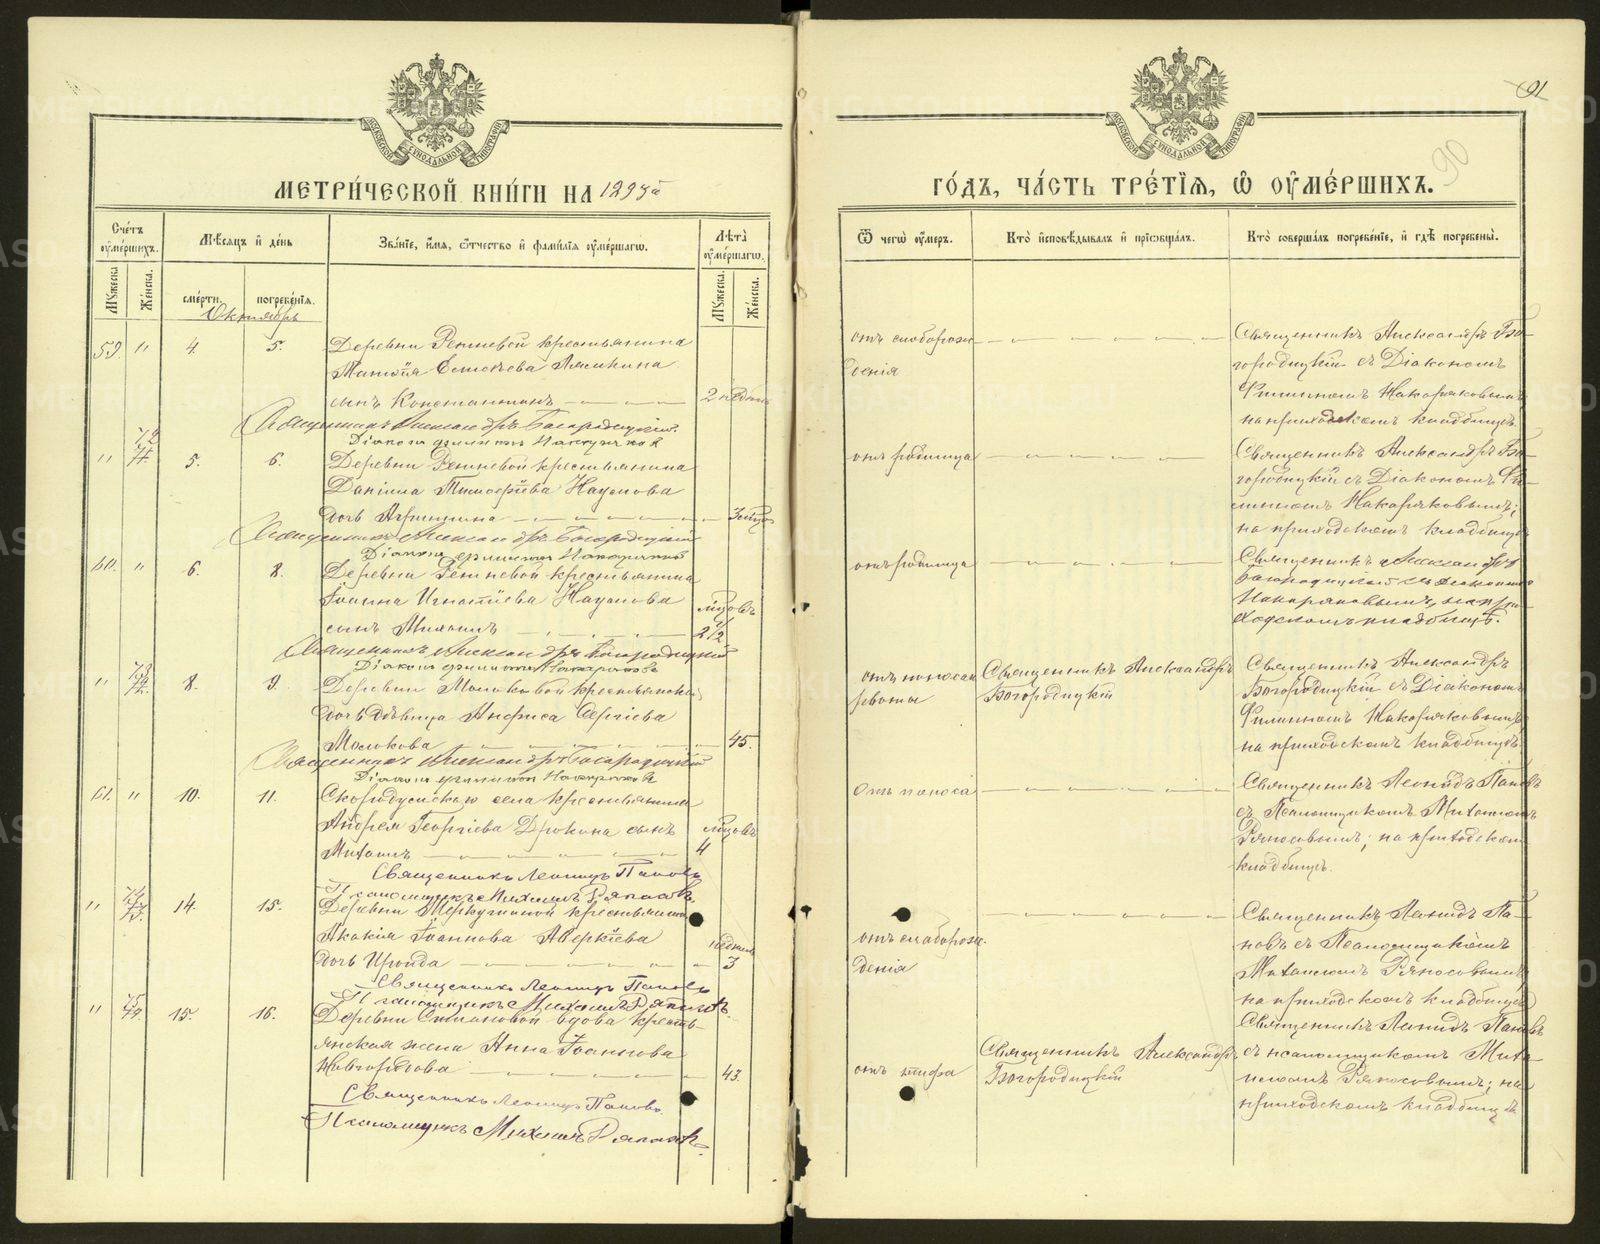 91
90
МЕТРИ́ЧЕСКОЙ КНИ́ГИ НА 1893й
ГО́ДЪ, ЧА́СТЬ ТРЕ́ТЇѦ, Ѡ ОУ҆МЕ́РШИХЪ.
Сче́тъ оу҆ме́ршихъ.
Мѣ́сѧцъ и҆ де́нь
Зва́нїе, и҆́мѧ, ѻ҆́тчество и҆ фами́лїѧ оу҆ме́ршагѡ.
Лѣ́та оу҆ме́ршагѡ.
Мꙋ́жеска
Же́нска.
сме́рти.
погребе́нїѧ.
Мꙋ́жеска.
Же́нска.
Ѿ чегѡ̀ оу҆́меръ.
Кто̀ и҆сповѣ́дывалъ и҆ прїѡбща́лъ.
Кто̀ соверша́лъ погребе́нїе, и҆ гдѣ̀ погребены̀.
Октябрь
59. " 4. 5.
Деревни Реневой крестьянина
сынъ Константинъ
2 недѣль
отъ слаборож-
денія
Священникъ Александръ Бо-
городицкій съ Діакономъ
Филиппомъ Накаряковымъ
на приходскомъ кладбищѣ.
Священникъ Александръ Богородицкій.
Діаконъ Филиппъ Накаряковъ
" 72 5. 6.
Деревни Реневой крестьянина
Даніила Тимофѣева Наумова
дочь Агриппина
отъ родимца
Священникъ Александръ Бо-
городицкій съ Діакономъ Фи-
липпомъ Накаряковымъ;
на приходскомъ кладбищѣ
Священникъ Александръ Богородицкій
Діаконъ Филиппъ Накаряковъ
60. " 6. 8.
Деревни Реневой крестьянина
Іоанна Игнатіева Наумова
сынъ Михаилъ
мѣсцовъ
2 1/2
отъ родимца
Священникъ Александръ
Богородицкій съ Діакономъ
Накаряковымъ, на при-
ходскомъ кладбищѣ.
Священникъ Александръ Богородицкій
Діаконъ Филиппъ Накаряковъ
" 73 8. 9.
Деревни Молоковой крестьянская
дочь дѣвица Анфиса Сергіева
Молокова
45.
отъ поноса и
рвоты
Священникъ Александръ
Богородицкій
Священникъ Александръ
Богородицкій съ Діакономъ
Филиппомъ Накаряковымъ
на приходскомъ кладбищѣ
Священникъ Александръ Богородицкій
Діаконъ Филиппъ Накаряковъ
61. " 10. 11.
Скородумскаго села крестьянина
Андрея Георгіева Дрокина сынъ
Михаилъ
мѣсцовъ
4
Отъ поноса
Священникъ Леонидъ Поповъ
съ Псаломщикомъ Михаиломъ
на приходскомъ
кладбищѣ.
Священникъ Леонидъ Поповъ
" 74 14. 15.
Деревни Меркушиной крестьянина
Акакія Іоаннова Аверкіева
дочь Ираида
недѣль
3
отъ слаборож-
денія
Священникъ Леонидъ По-
повъ съ Псаломщикомъ
на приходскомъ кладбищѣ
Священникъ Леонидъ Поповъ
" 75 15. 16.
Деревни Степановой вдова кресть-
янская жена Анна Іоаннова
Новгородова
43.
отъ тифа
Священникъ Александръ
Богородицкій
Священникъ Леонидъ Поповъ
съ псаломщикомъ Миха-
на
приходскомъ кладбищѣ
Священникъ Леонидъ Поповъ.
METRIKI.GASO-URAL.RU